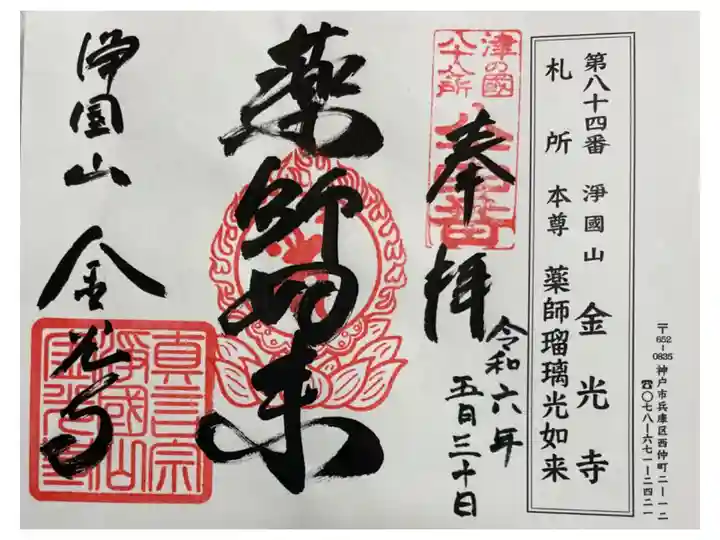 〒652-0835 神戸市兵庫区西仲町二-一二
☎〇七八-六七一-二四二一
第八十四番 淨國山 金光寺
札所 本尊 薬師瑠璃光如来
津の國
八十八所
奉拝
令和六年
五月三十日
薬師如来
淨国山 金光寺
真言宗
淨國山
金光寺